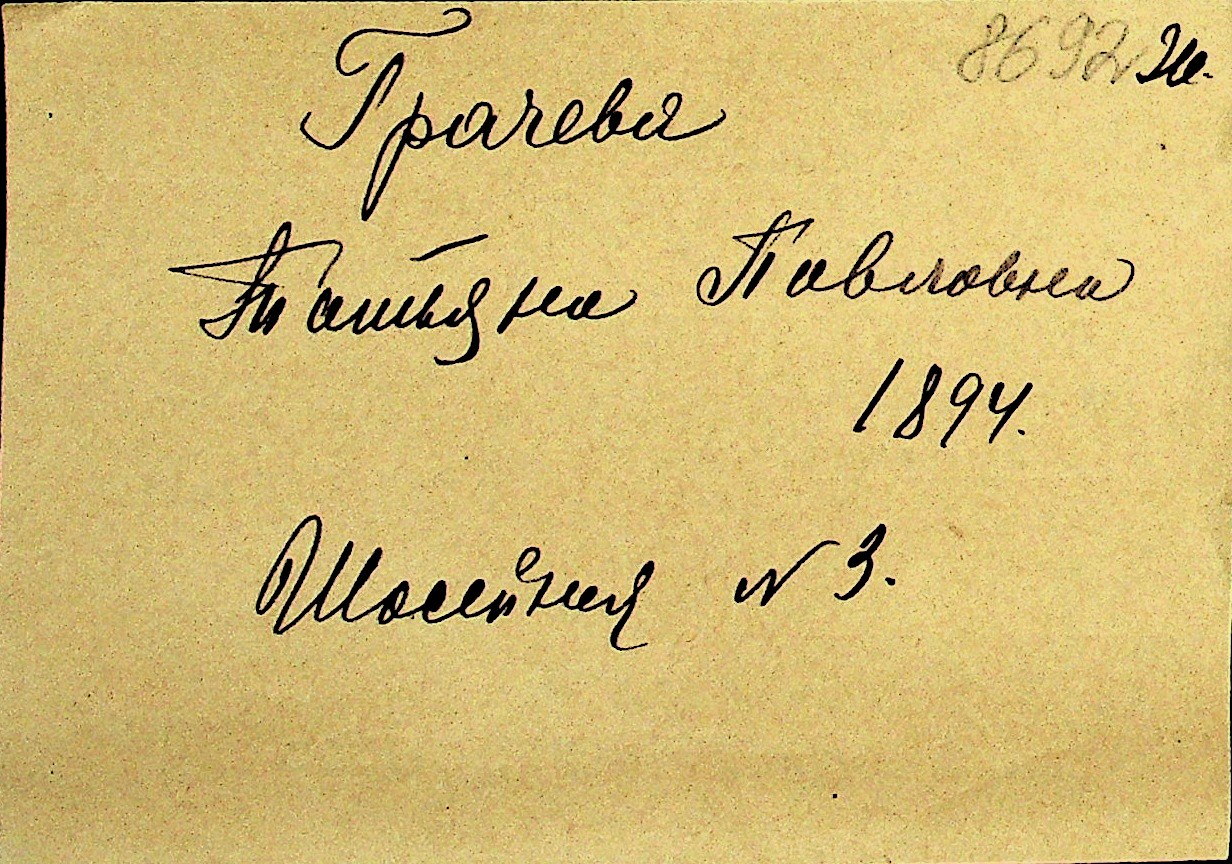 8692 Ж.
Грачева
Татьяна Павловна
1894.
Шоссейная № 3.